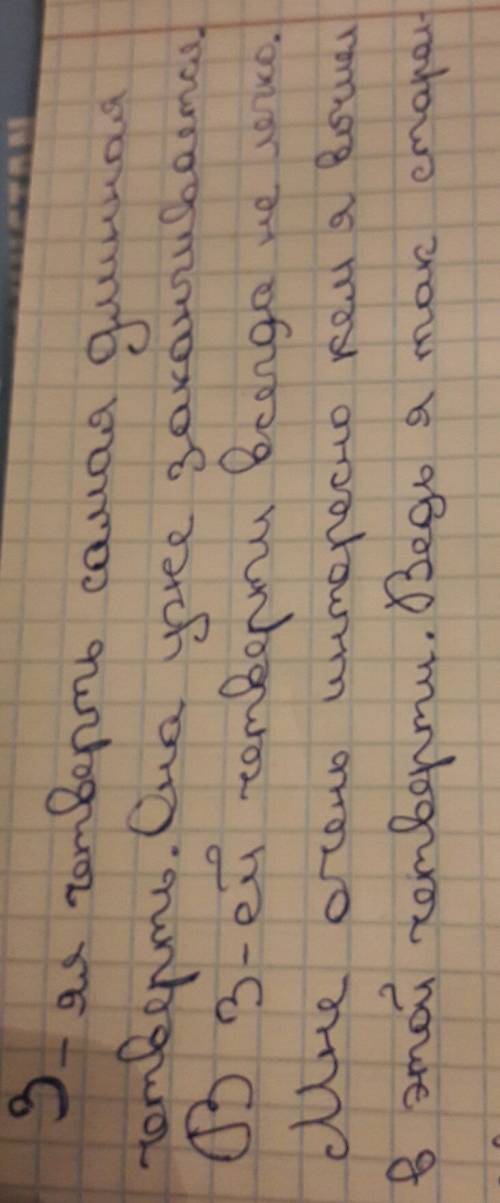 3-яя четверть самая длинная
четверть. Она уже заканчивается.
В 3-ей четверти всегда не легко.
Мне очень интересно кем я вочшел
в этой четверти. Ведь я так старал-